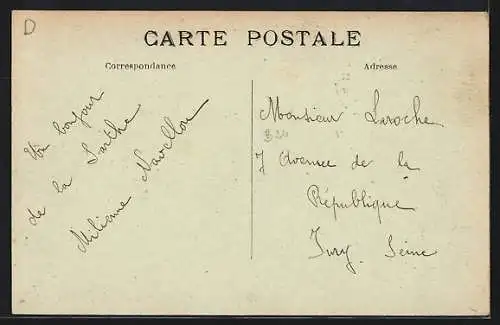 D
CARTE POSTALE
Correspondance
Adresse
Un bonjour
de la Sarthe
Miliame Navellou
Monsieur Laroche
7 Avenue de la
République
Ivry. Seine